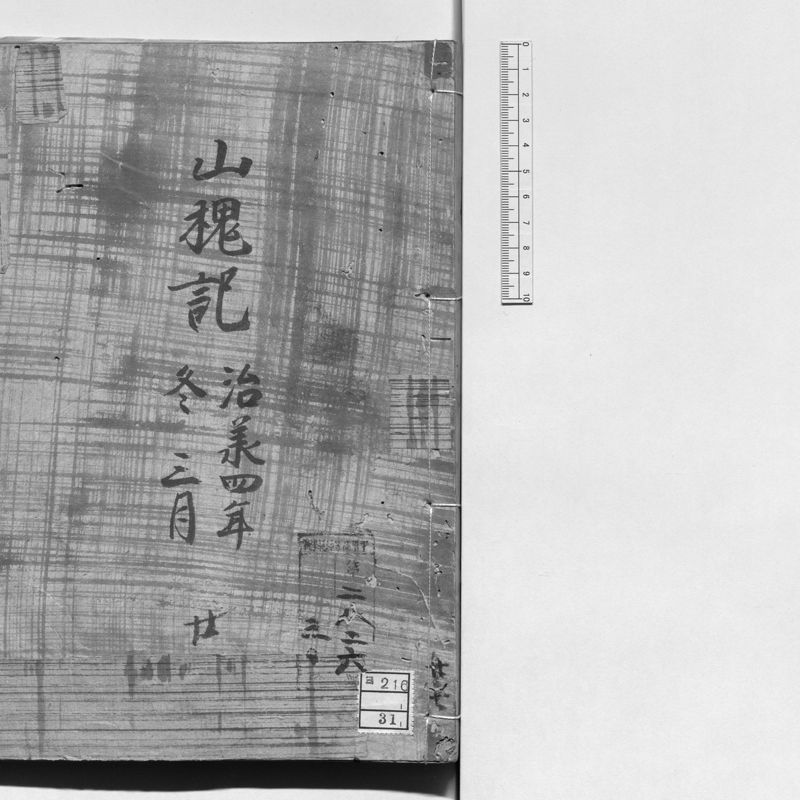 山槐記
治承四年
冬 三月
廿
二八二六
三
ヨ 216
31
0 1 2 3 4 5 6 7 8 9 10